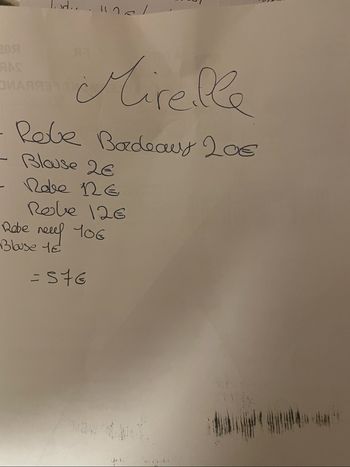 Mireille
- Robe Bordeaux 20€
- Blouse 2€
- Robe 12€
Robe 12€
Robe neuf 10€
Blouse 1€
= 57€